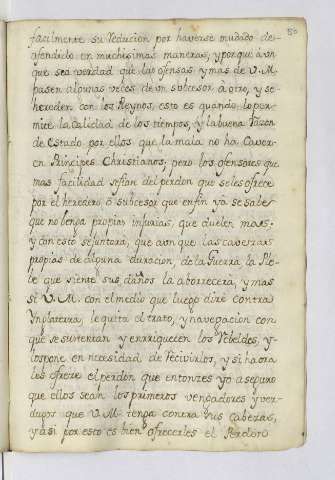 50
facilmente su Reducion por haverse mudado de
ofendido en muchisimas maneras, y porque a un
que sea verdad que las ofensas y mas de V. M.
pasen algunas veces de un subcesor à otro, y se
hereden con los Reynos, esto es quando lo per
mite la Calidad de los tiempos, y la buena Razon
de Estado por ellos que la mala no ha Caver
en Principes Christianos, pero los ofensores que
mas facilidad se fian del perdon que seles ofrece
por el heredero ò subcesor que en fin ya se sabe
que no benga propias injurias, que duelen mas:
y con esto se juntara, que aun que las caveras
propias de alguna duracion, de la Guerra la Ple
be que siente sus daños la aborrecera, y mas
si V. M. con el medio que luego diré contra
Ynglaterra, le quita el trato, y navegacion con
que se sustentan y enrriquecen los Rebeldes, y
los pone en necesidad de recivirlos, y si haora
les ofrece el perdon que entonzes yo aseguro
que ellos sean los primeros vengadores y ver
dugos que V. M. tenga contra sus Cabezas,
y asi por esto es bien ofrecerles el Perdon